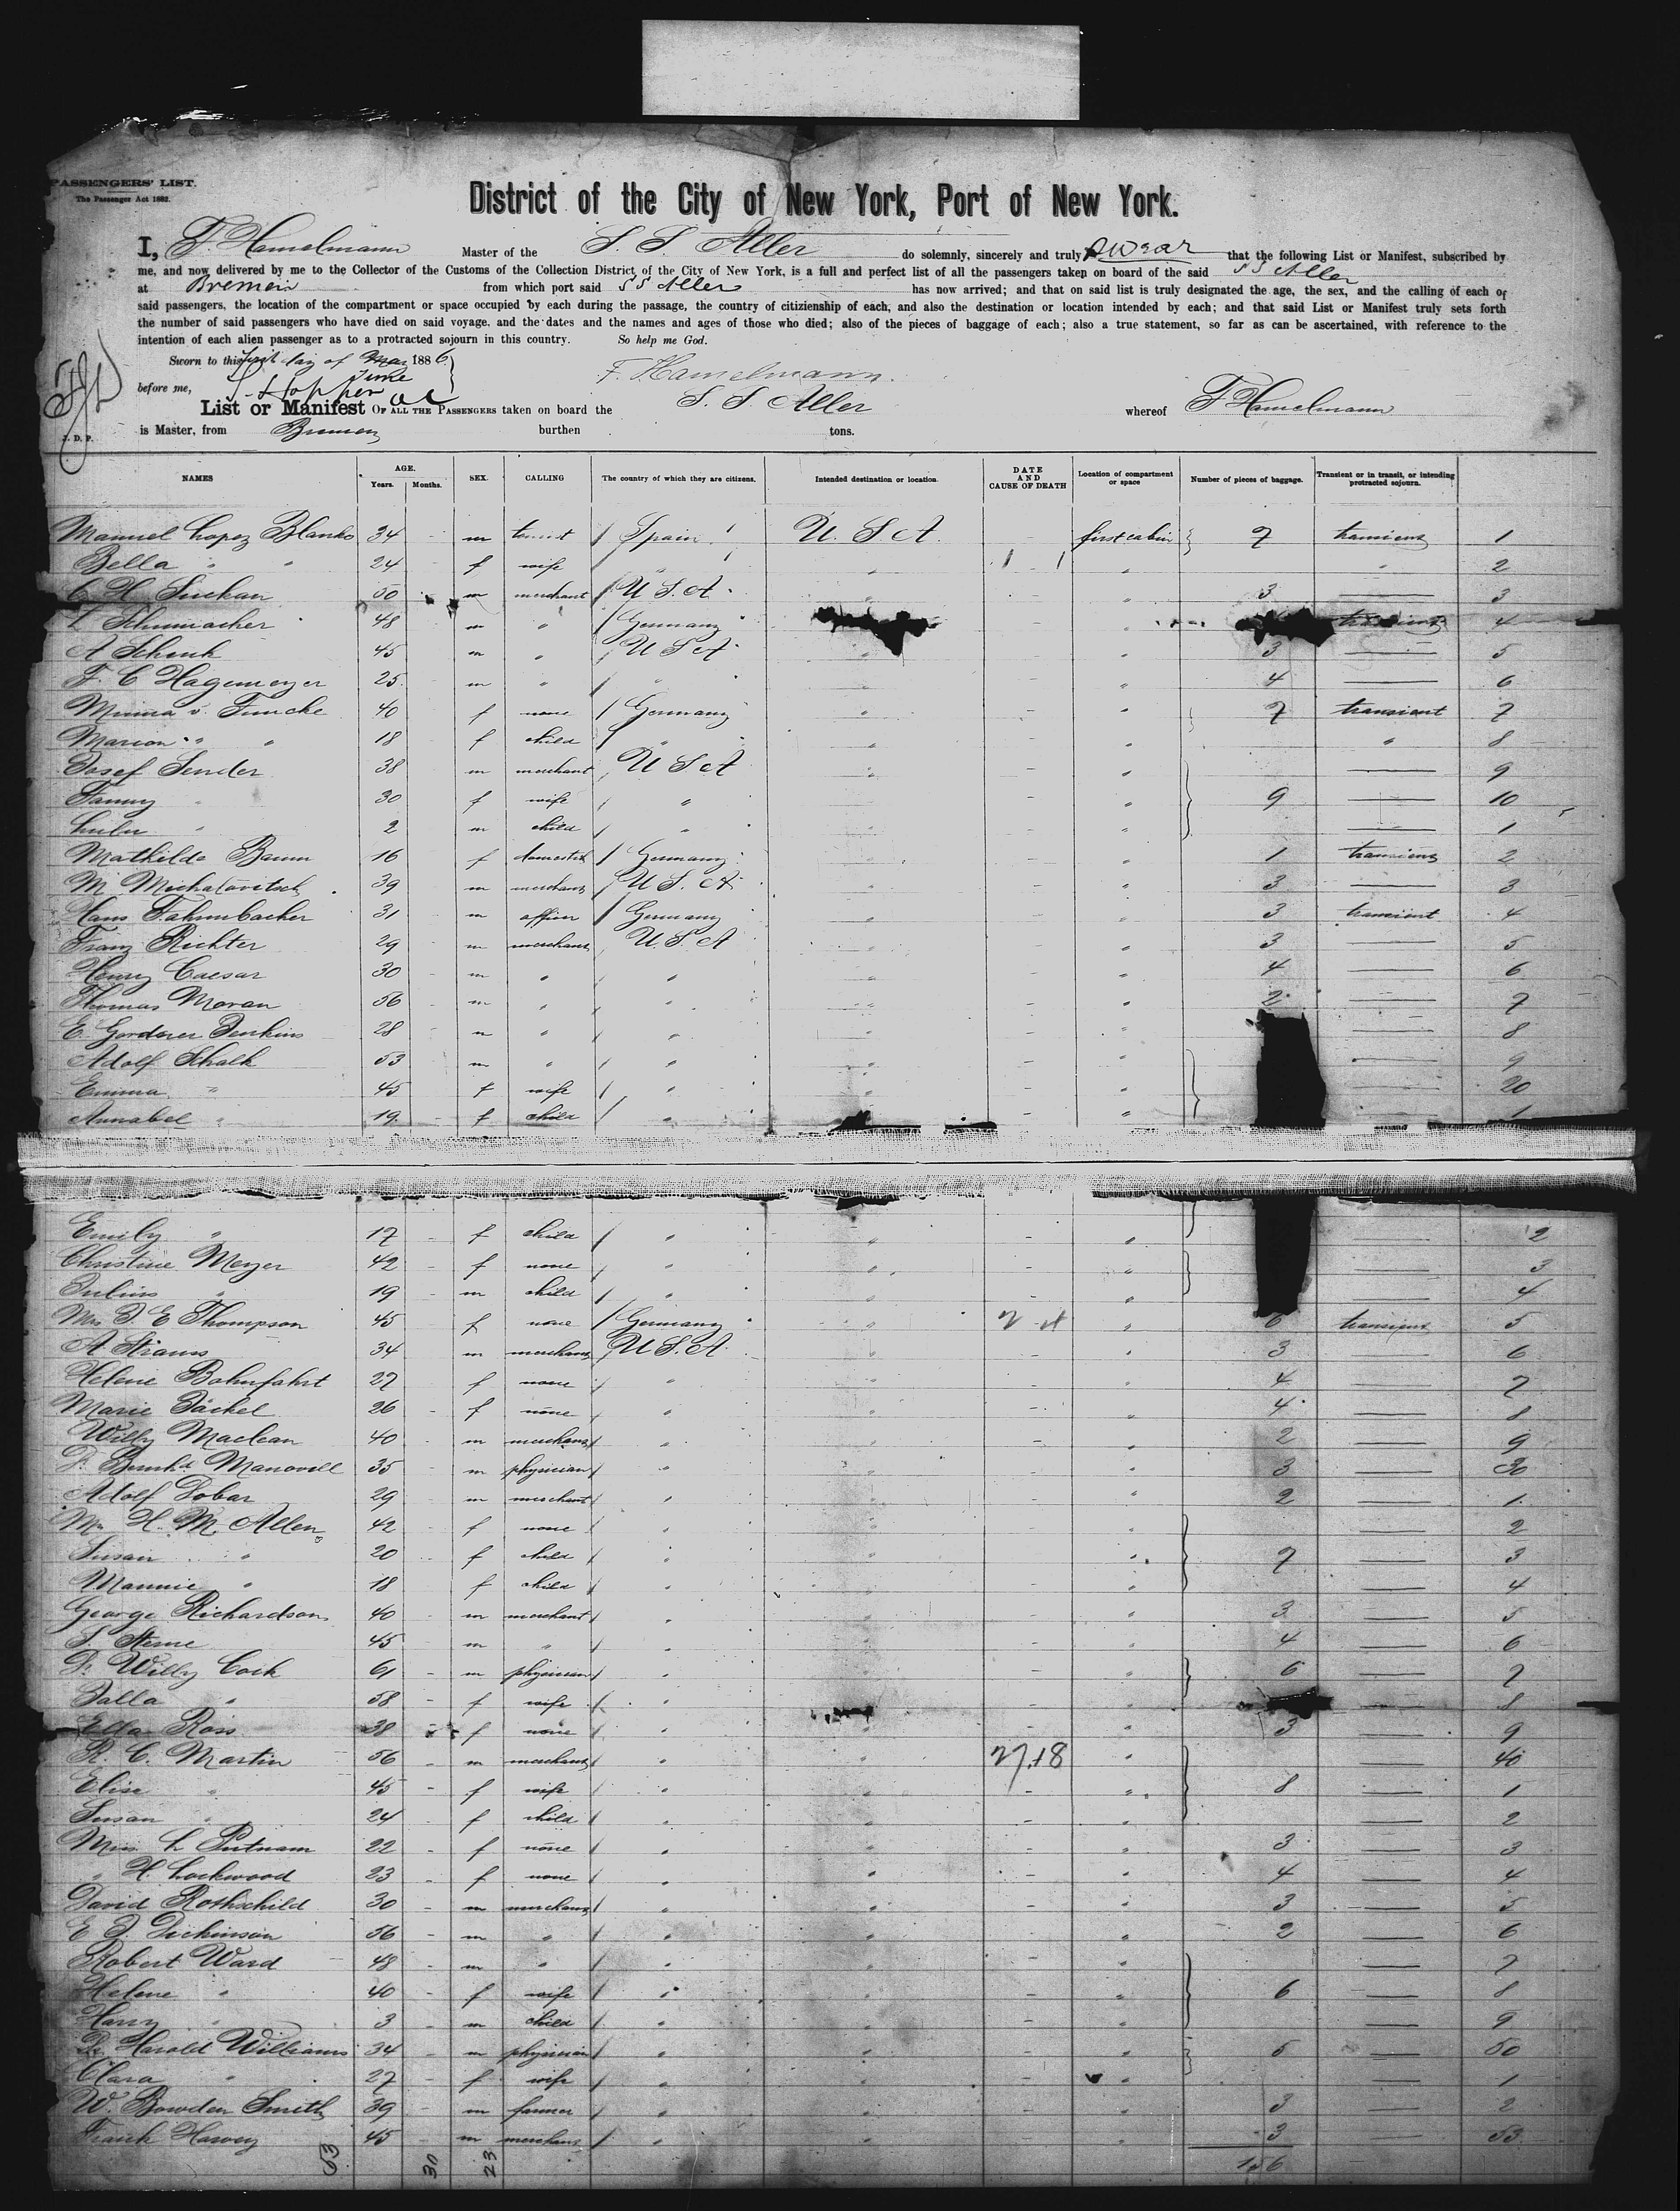 PASSENGERS' LIST.
The Passenger Act 1882.
District of the City of New York, Port of New York.
I, F. Hamelmann Master of the S. S. Aller do solemnly, sincerely and truly swear that the following List or Manifest, subscribed by
me, and now delivered by me to the Collector of the Customs of the Collection District of the City of New York, is a full and perfect list of all the passengers taken on board of the said SS Aller
at Bremen from which port said SS Aller has now arrived; and that on said list is truly designated the age, the sex, and the calling of each of
said passengers, the location of the compartment or space occupied by each during the passage, the country of citizienship of each, and also the destination or location intended by each; and that said List or Manifest truly sets forth
the number of said passengers who have died on said voyage, and the dates and the names and ages of those who died; also of the pieces of baggage of each; also a true statement, so far as can be ascertained, with reference to the
intention of each alien passenger as to a protracted sojourn in this country. So help me God.
Sworn to this first day of June 1886
before me, F. Hamelmann
List or Manifest OF ALL THE PASSENGERS taken on board the S. S. Aller whereof F Hamelmann
J. D. P. is Master, from Bremen burthen tons.
NAMES AGE. Years. Months. SEX. CALLING The country of which they are citizens. Intended destination or location. DATE AND CAUSE OF DEATH Location of compartment or space Number of pieces of baggage. Transient or in transit, or intending protracted sojourn.
Manuel Lopez Blanko 34 - m tourist Spain U. S. A. first cabin 7 transient 1
Bella " " 24 - f wife " " " " 2
C H 50 m merchant U S. A. " " 3 — 3
L Schumacher 48 m " Germany " transient 4
A Schenk 45 m " U S A " " 3 — 5
F. C Hagemeyer 25 m " " " " 4 — 6
Minna v. Funcke 40 f none Germany " " 7 transient 7
Marion " " 18 f child " " " " 8
Josef Sender 38 m merchant U S A " " — 9
Fanny " 30 f wife " " " 9 — 10
Lulu " 2 m child " " " — 1
Mathilde Baum 16 f domestic Germany " " 1 transient 2
M 39 m merchant U S. A. " " 3 — 3
Hans Fahrmbacher 31 m Germany " " 3 transient 4
Franz Richter 29 m merchant U. S. A " " 3 — 5
Henry Caesar 30 m " " " " 4 — 6
Thomas Moran 56 m " " " " 2 — 7
E. Gardner Jenkins 28 m " " " " — 8
Adolf Schalk 53 m " " " " — 9
Emma " 45 f wife " " " — 20
Annabel " 19 f child " " " — 1
Emily " 17 - f child " " - " — 2
Christine Meyer 42 - f none " " - " — 3
Julius " 19 m child " " - " — 4
Mrs J. E Thompson 45 f none Germany " " 6 transient 5
A Strauss 34 m merchant U S. A. " " 3 — 6
Helene Bahnfahrt 27 f none " " " 4 — 7
Marie Jäckel 26 f none " " " 4 — 8
Willy Maclean 40 m merchant " " " 2 — 9
Dr Bernhd 35 m physician " " " 3 — 30
Adolf Dobar 29 m merchant " " " 2 — 1
H. M. Allen 42 f none " " " — 2
Susan " 20 f child " " " 7 — 3
Mannie " 18 f child " " " — 4
George Richardson 40 m merchant " " " 3 — 5
S. Sterne 45 m " " " " 4 — 6
Dr Willy Cock 61 m physician " " " 6 — 7
" 58 f wife " " " — 8
Ella Ross 38 f none " " " 3 — 9
R. C. Martin 56 m merchant " " " — 40
Elise " 45 f wife " " " 8 — 1
Susan " 24 f child " " " — 2
Miss L Putnam 22 f none " " " 3 — 3
" H. Lockwood 23 f none " " " 4 — 4
David Rothschild 30 m merchant " " " 3 — 5
E J. Dickinson 56 m " " " " 2 — 6
Robert Ward 48 m " " " " — 7
Helene " 40 f wife " " " 6 — 8
Harry " 3 m child " " " — 9
Dr. Harold Williams 34 m physician " " " 5 — 50
Clara " 27 f wife " " " — 1
W. Bowden Smith 39 m farmer " " " 3 — 2
Frank Harvey 45 m merchant " " " 3 — 53
53 30 23 156